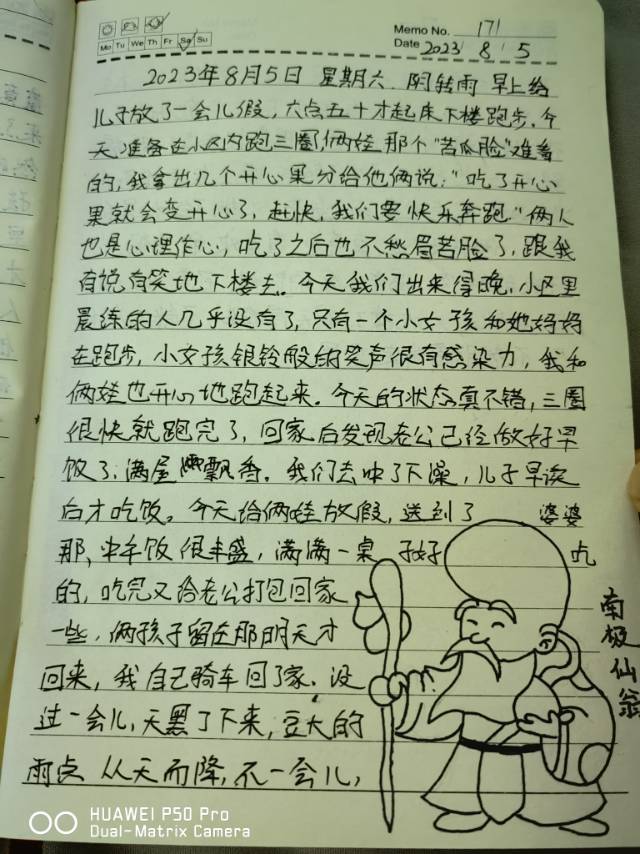 Memo No. 171
Mo Tu We Th Fr Sa Su
Date 2023 / 8 / 5
2023年8月5日 星期六 阴转雨 早上给
儿子放了一会儿假，六点五十才起床下楼跑步。今
天准备在小区内跑三圈，俩娃那个“苦瓜脸”难看
的，我拿出几个开心果分给他俩说：“吃了开心
果就会变开心了，赶快，我们要快乐奔跑”俩人
也是心理作心，吃了之后也不愁眉苦脸了，跟我
有说有笑地下楼去。今天我们出来得晚，小区里
晨练的人几乎没有了，只有一个小女孩和她妈妈
在跑步，小女孩银铃般的笑声很有感染力，我和
俩娃也开心地跑起来。今天的状态真不错，三圈
很快就跑完了，回家后发现老公已经做好早
饭了，满屋飘香。我们去冲了下澡，儿子早读
后才吃饭。今天给俩娃放假，送到了 婆婆
那，中午饭很丰盛，满满一桌 好 吃
的，吃完又给老公打包回家
一些，俩孩子留在那明天才
回来，我自己骑车回了家。没
过一会儿，天黑了下来，豆大的
雨点从天而降，不一会儿，
南极仙翁
HUAWEI P50 Pro
Dual-Matrix Camera